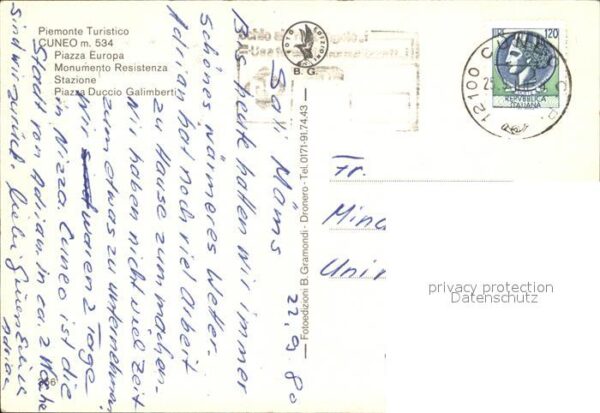 Piemonte Turistico
CUNEO m. 534
Piazza Europa
Monumento Resistenza
Stazione
Piazza Duccio Galimberti
B. G.
Fotoedizioni B. Gramondi - Dronero - Tel. 0171-91.74.43
12100 CUNEO C.P.
120
REPVBBLICA
ITALIANA
22.9.80
Salli Mäms
Bis heute hatten wir immer
schönes wärmeres Wetter.
Adrian hat noch viel Arbeit
zu Hause zum machen.
Wir haben nicht viel Zeit
zum etwas zu unternehmen.
Wir waren 2 Tage
in Nizza. Cuneo ist die
Stadt von Adrian in ca. 2 Woche
sind wir zurück. Liebi
Adrian
Fr.
privacy protection
Datenschutz